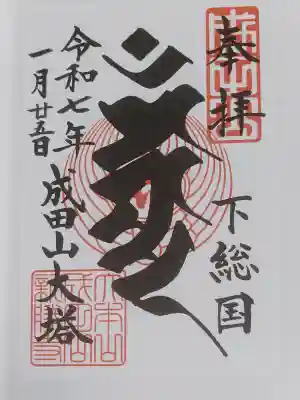 奉拝
下総国
成田山大塔
令和七年
一月廿五日